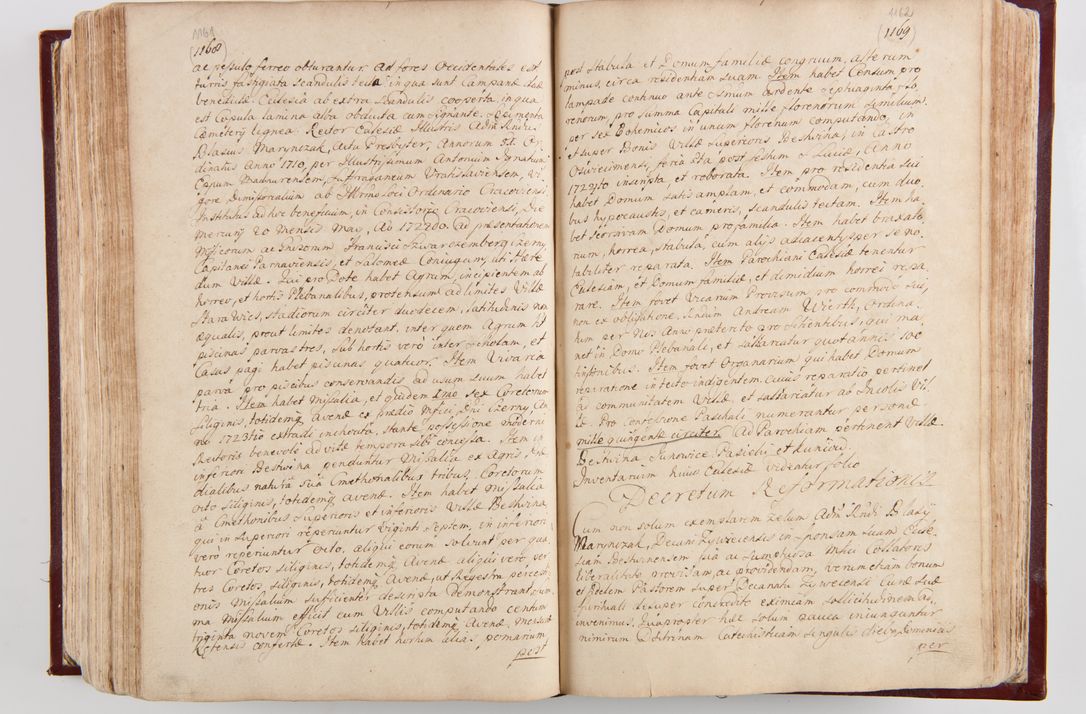 1161
(1168)
ac pessulo ferreo obturantur. Ad fores Occidentales est
turris fastigiata scandulis tecta in qua sunt Campanæ duæ
benedictæ. Ecclesia ab extra scandulis cooperta, in qua
est Cupula lamina alba obducta cum signante.
Cæmeterij lignea. Rector Ecclesiæ Illustris Adm Rndus
Blasius Marynczak, actu Presbyter, Annorum
dinatus Anno 1710, per Illustrissimum Antonium Ignatium
Eppum Madaurensem, Suffraganeum Vratislaviensem, vi
gore Dimissorialium ab Illrmo loci Ordinario Cracoviensi
Institutus ad hoc beneficium, in Consistorio Cracoviensi, Die
Mercurij 20 Mensis May, Ao 1722do. Ad præsentationem
Mfficorum ac Gnsorum Francisci Szwarczemberg Czerny,
Capitanei Parnaviensis, et Salomeæ Coniugum, uti Hære
dum Villæ. Qui pro Dote habet Agrum, incipientem ab
horreo, et hortis Plebanalibus, protensum ad limites Villæ
Stara Wies, stadiorum circiter duodecem, latitudinis non
æqualis, prout limites denotant, inter quem Agrum
piscinas parvas tres, sub hortis verò inter Scholam, et
Casas pagi habet piscinas quatuor. Item Vivaria
parva pro piscibus conservandis ad usum suum habet
tria. Item habet missalia, et quidem sex Coretonum
siliginis, totidemq avenæ ex prædio Mfici Dni Czerny, An
no 1723tio extradi inchoata, stante possessione moderni
Rectoris benevolè ad vitæ tempora sibi concessa. Item in
inferiori Beshvina penduntur Missalia ex Agris, Præ
dialibus natura sua Cmethonalibus tribus, Coretorum
octo siliginis, totidemq avenæ. Item habet Missalia
à Cmethonibus superioris et inferioris Villæ Beshvina,
qui in superiori reperiuntur viginti septem, in inferiori
verò reperiuntur octo, aliqui eorum solvunt per qua
tuor Coretos siliginis, totidemq Avenæ aliqui verò per
tres Coretos siliginis, totidemq Avenæ, ut Regestra percep
onis Missalium sufficienter descripta Demonstrant,
ma Missalium efficit cum Villis computando centum
triginta novem Coretos siliginis, totidemq Avenæ, mensuræ
Ketensis confertæ. Item habet hortum alias pomarium,
post
1162
(1169)
post stabula et Domum familiæ congruum, alterum
minus, circa residentiam suam. Item habet Censum pro
lampade continuo ante Ssmum ardente septuaginta flo
renorum, pro summa Capitali mille florenorum similium,
per sex Bohemicos in unum florenum computando, in
et super Bonis Villæ superioris Beshvina, in Castro
Osviecimensi, feria 5ta post festum S Luciæ, Anno
1722do inscripta, et roborata. Item pro residentia sui
habet Domum satis amplam, et commodam, cum duo
bus hypocaustis, et cameris, scandulis tectam. Item ha
bet seorsivam Domum pro familia. Item habet braxato
rium, horrea, stabula, cum alijs adiacentijs per se no
tabiliter reparata. Item Parochiani Ecclesiæ tenentur
Ecclesiam, et Domum familiæ, et dimidium horrei repa
rare. Item fovet Vicarium Provisum pro commodo sui,
non ex obligatione, Rndum Andream Wierth, Ordina
tum per Nos Anno præterito pro sitientibus, qui ma
net in Domo Plebanali, et sallariatur quotannis 100
tinfonibus. Item fovet Organarium qui habet Domum
reparatione in tecto indigentem, cuius reparatio pertinet
ad communitatem Villæ, et sallariatur ab Incolis Vil
læ. Pro Confessione Paschali numerantur personæ
mille quingentæ circiter. Ad Parochiam pertinent Villæ
Beshvina Janowice Pasieki, et Kaniów.
Inventarium huius Ecclesiæ videatur folio
Decretum Reformationis
Cum non solum exemplarem zelum Adm Rndi Blasij
Marynczak, Decani Zywiecensis in sponsam suam Eccle
siam Beshvinensem pia ac sumptuosa Mfici Collatoris
liberalitate provisam, ac providendam, verum etiam bonum
et fidelem Pastorem super Decanatu Zywecensi Curæ suæ
spirituali desuper concredito eximiam sollicitudinem ad
invenimus. Quapropter hæc solum pauca iniunguntur
nimirum Doctrinam Catechisticam singulis diebus Dominicis
per